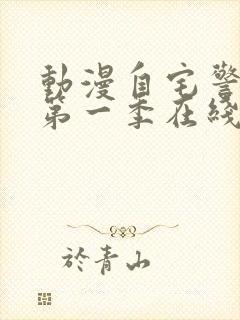 動漫自宅警
第一季在綫
於青山